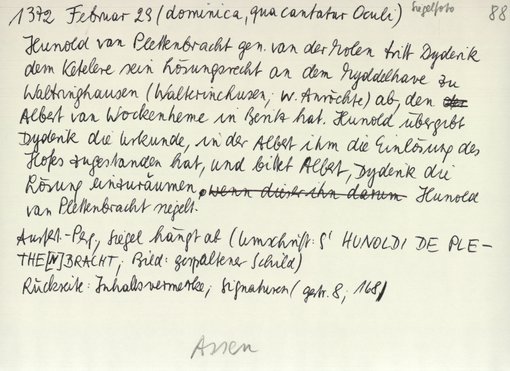 1372 Februar 29 (dominica, qua cantatur Oculi) Siegelfoto 88
Hunold van Plettenbracht gen. van der Molen tritt Dyderik
dem Ketelere sein Lösungsrecht an dem Myddelhave zu
Waltringhausen (Walterinchusen; w. Anröchte) ab, den der
Albert van Wockenheme in Besitz hat. Hunold übergibt
Dyderik die Urkunde, in der Albert ihm die Einlösung des
Hofes zugestanden hat, und bittet Albert, Dyderik die
Lösung einzuräumen, wenn dieser ihn darum Hunold
van Plettenbracht siegelt.
Ausf.-Perg., Siegel hängt ab (Umschrift: S' HUNOLDI DE PLE-
THE[N]BRACHT; Bild: gespaltener Schild)
Rückseite: Inhaltsvermerke; Signaturen (gestr. 8; 168)
Assen